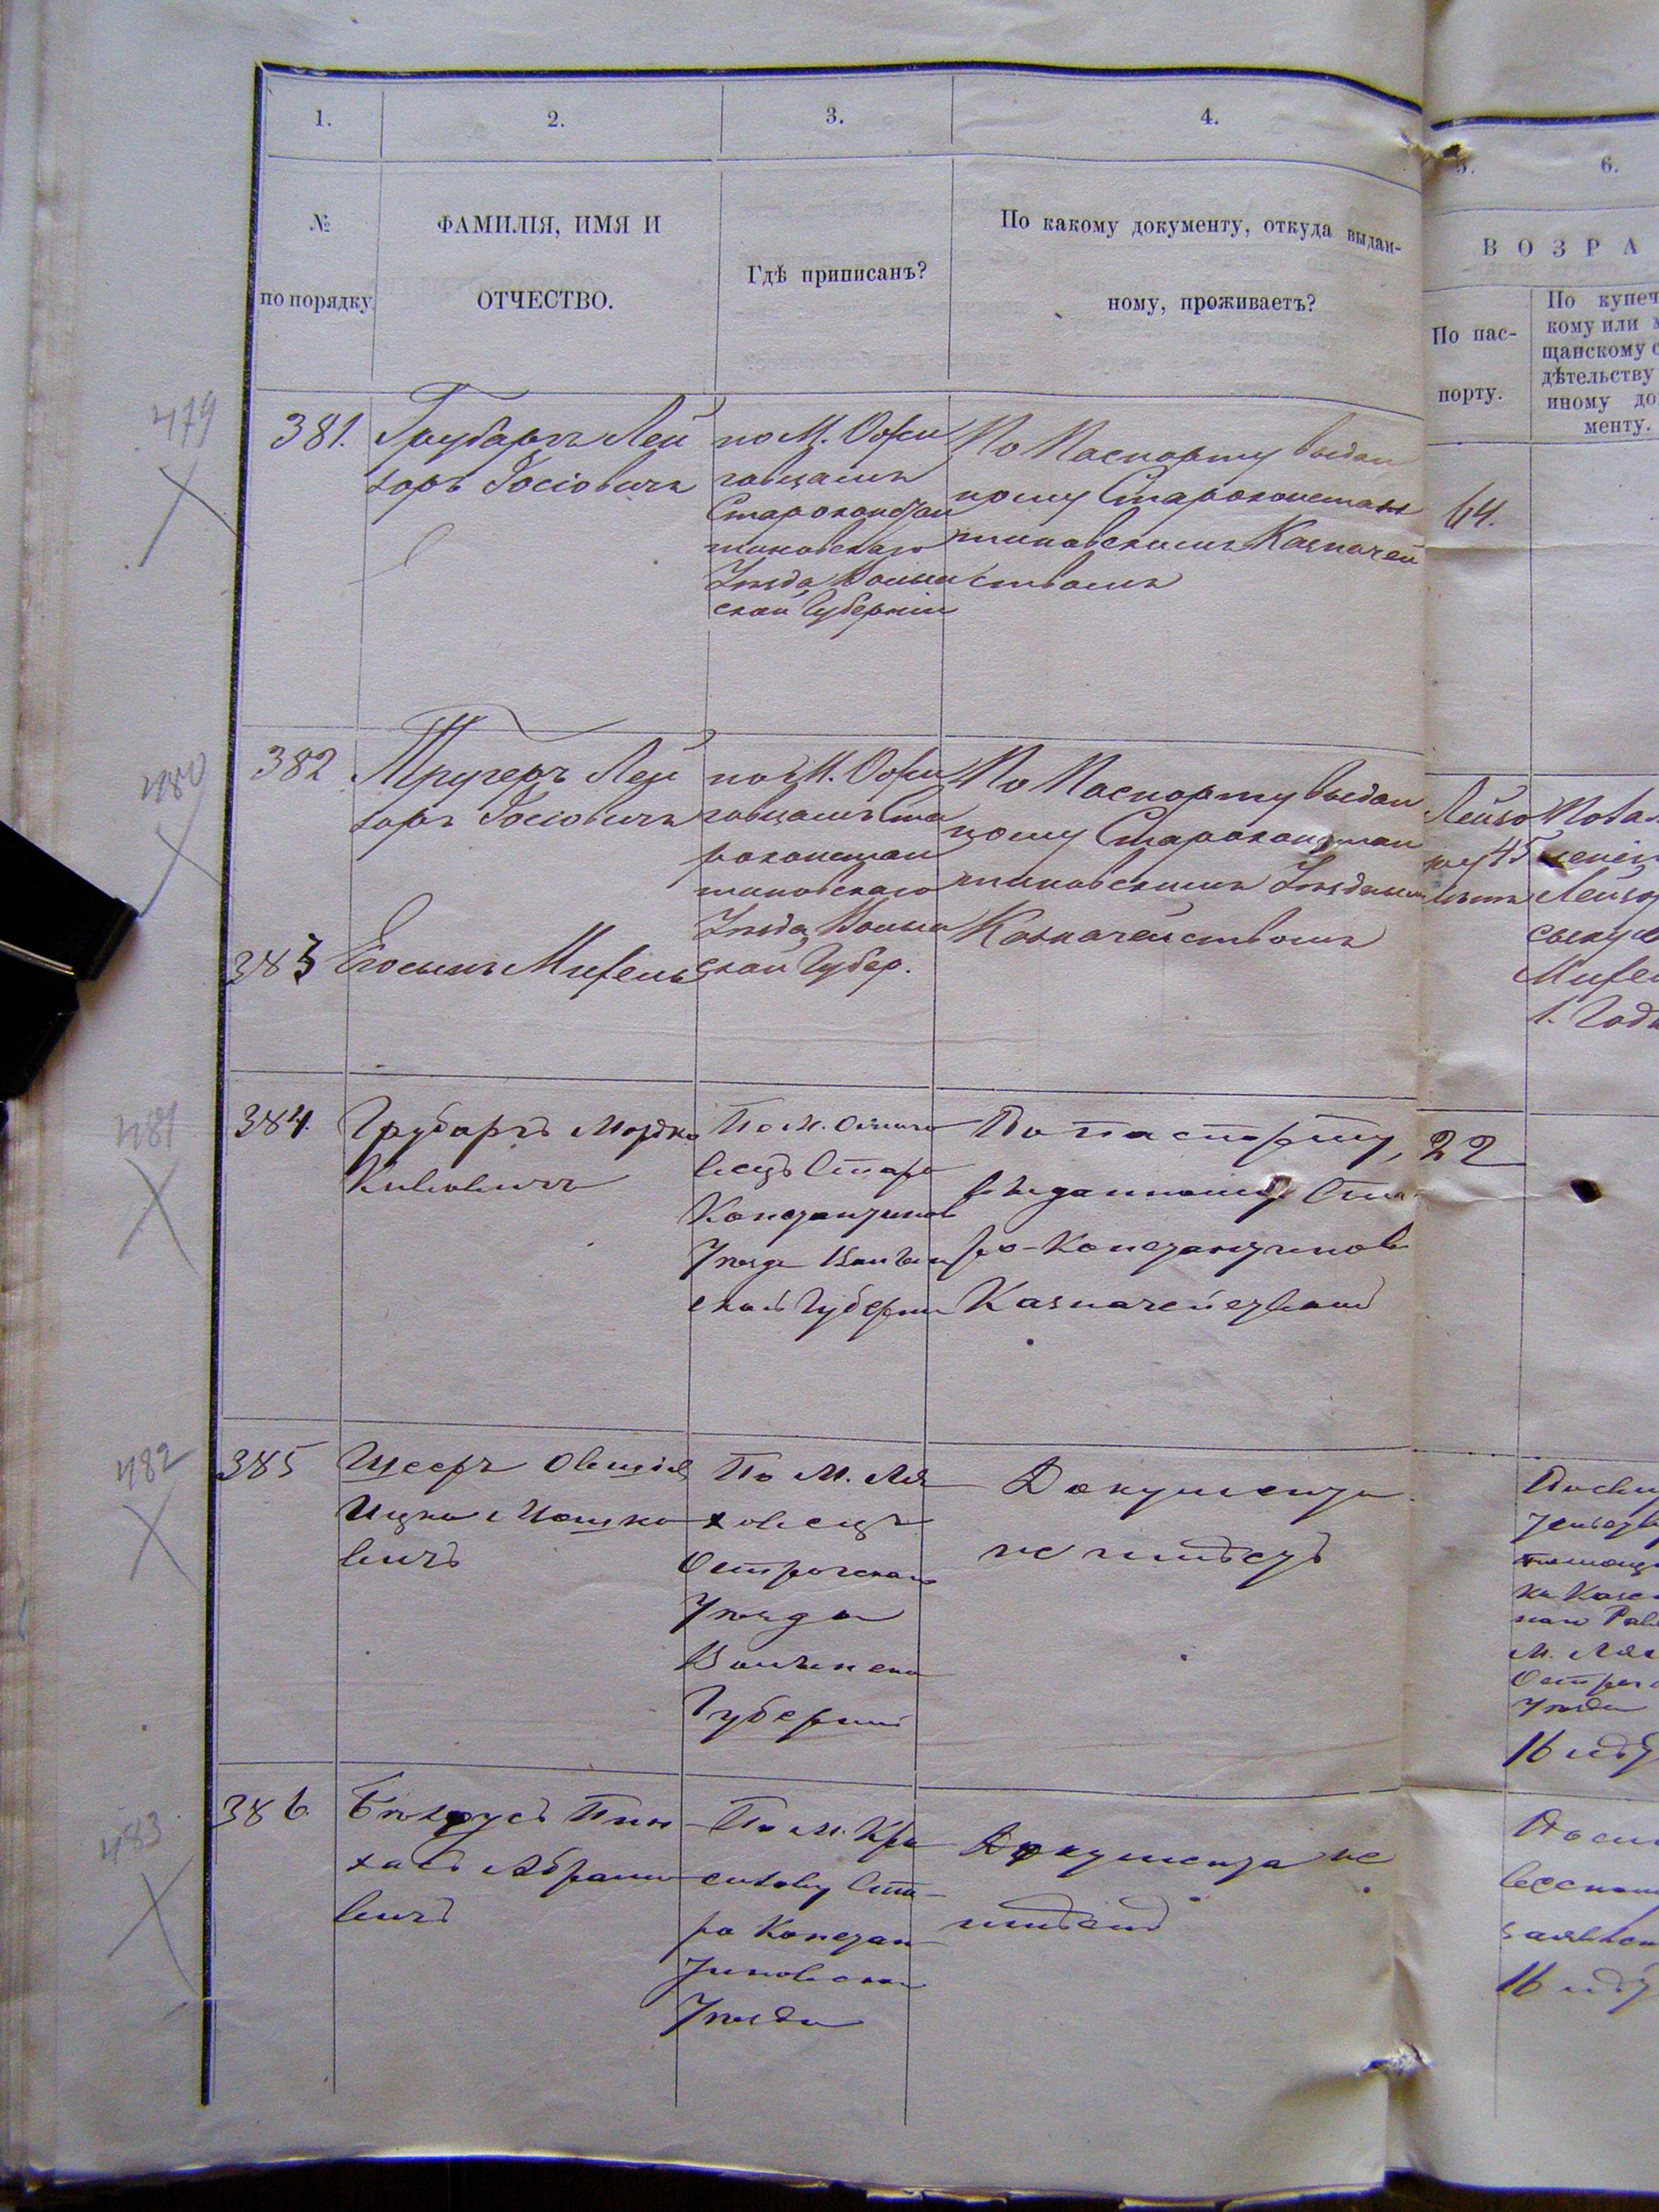 1.
2.
3.
4.
5.
6.
№
по порядку.
ФАМИЛІЯ, ИМЯ И
ОТЧЕСТВО.
Гдѣ приписанъ?
По какому документу, откуда выдан-
ному, проживаетъ?
ВОЗРА
По пас-
порту.
По купеч
кому или м
щанскому с
дѣтельству
иному до
менту.
479
381.
Грубаръ Лей
зоръ Іосіовичъ
по М. Ожи
говцамъ
Староконстан
тиновскаго
Уѣзда, Волын
ской Губерніи
По Паспорту выдан
ному Староконстан
тиновскимъ Казначей
ствомъ
64.
480
382
Тругеръ Лей
зоръ Іосіовичъ
по М. Ожи
говцамъ Ста
роконстан
тиновскаго
Уѣзда, Волын
ской Губер.
По Паспорту выдан
ному Староконстан
тиновскимъ Уѣзднымъ
Казначействомъ
Лейзо
ру 45
лѣтъ
Лейзо
сыну е
1. Года
383
Его сынъ
481
384.
Грубаръ Мордко
По М. Ожиго
вецъ Старо
Константинов
Уѣзда Волын
ской Губерни
По паспорту,
выданному Ста
ро-Константинов
Казначействомъ
22
482
385
Ицко Мошко
вичъ
По М. Ля
ховецъ
Острогскаго
Уѣзда
Волынско
Губерніи
Документа
не имѣетъ
М. Лях
Острог
Уѣзда
16 лѣт
483
386.
Пин
хасъ Абрамо
вичъ
По М. Кра
силову Ста-
ро Констан
тиновскаго
Уѣзда
Документа не
имѣетъ
16 лѣт